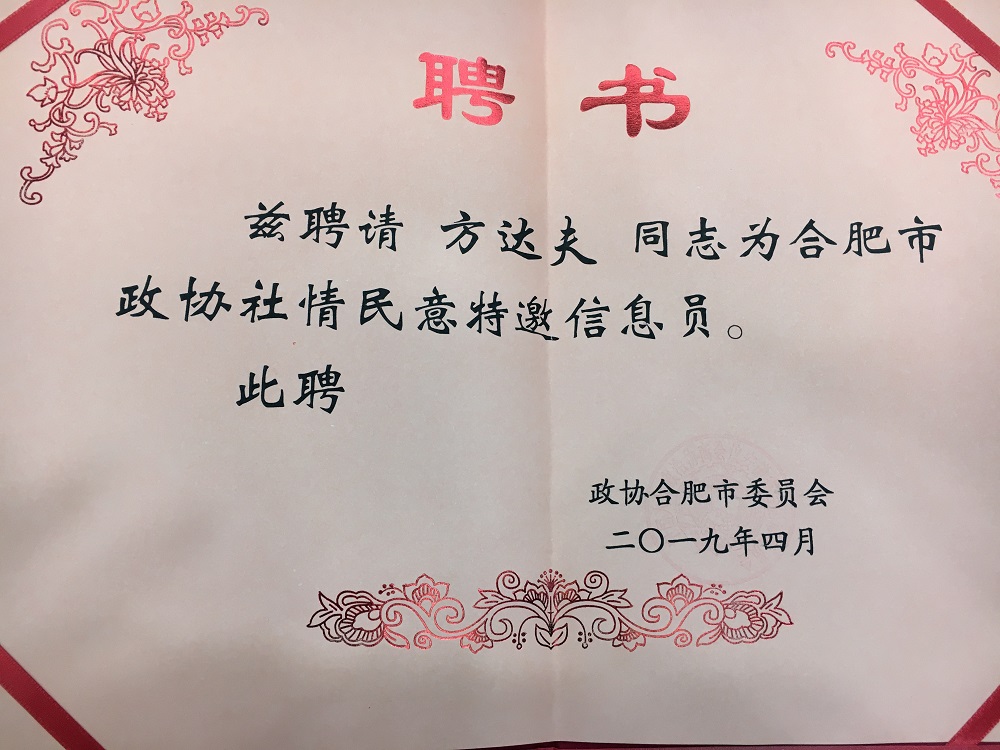 聘书
兹聘请 方达夫 同志为合肥市
政协社情民意特邀信息员。
此聘
政协合肥市委员会
二〇一九年四月